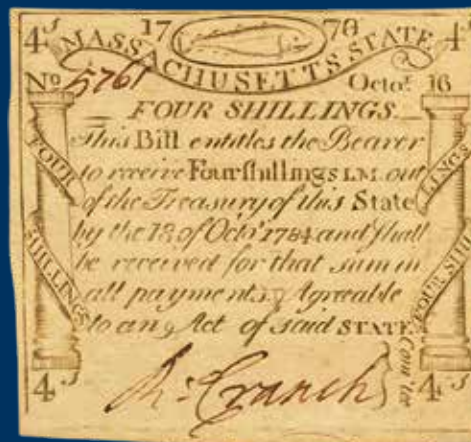 4s 17 78 4s
MASSACHUSETTS STATE
No 5761 Octor. 16
FOUR SHILLINGS.
This Bill entitles the Bearer
to receive Four shillings L.M. out
of the Treasury of this State
by the 18, of Octr. 1784 and shall
be received for that sum in
all payments Agreable
to an Act of said STATE
FOUR SHILLINGS
FOUR SHILLINGS
Rd. Cranch
Com'tee
4s 4s